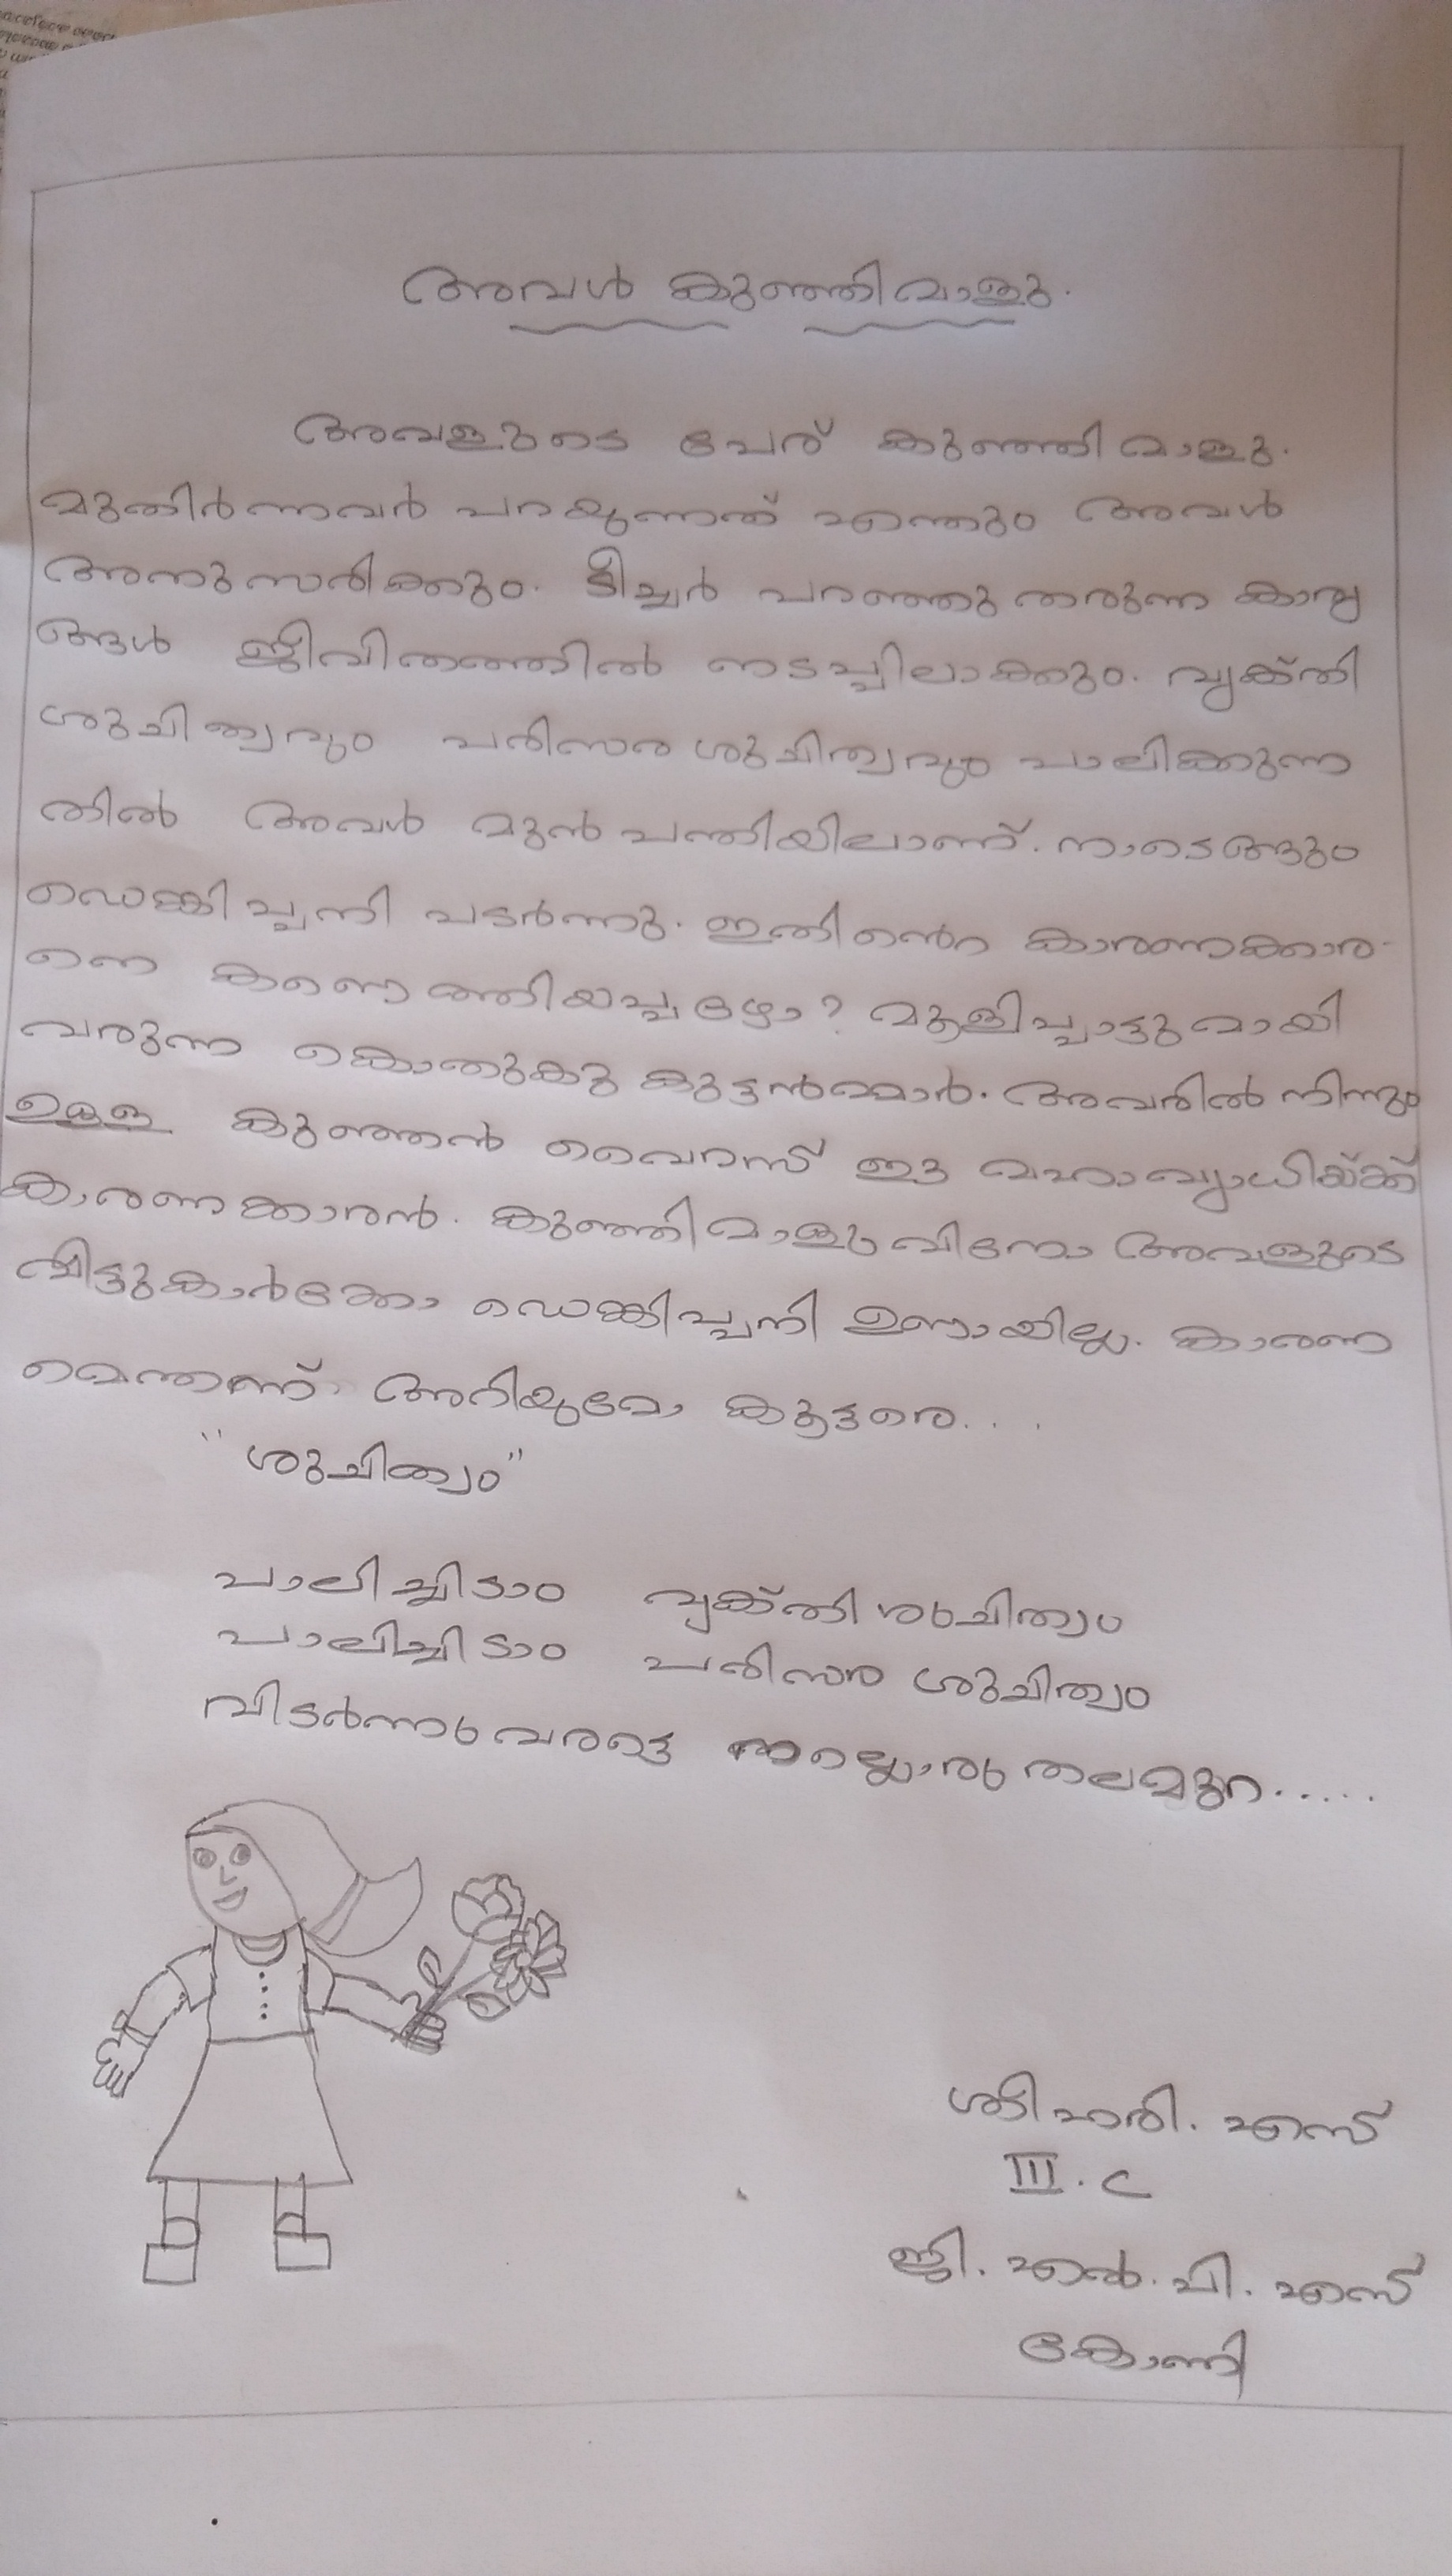 അവൾ കുഞ്ഞിമാളു.
അവളുടെ പേര് കുഞ്ഞിമാളു.
മുതിർന്നവർ പറയുന്നത് എന്തും അവൾ
അനുസരിക്കും. ടീച്ചർ പറഞ്ഞു തരുന്ന കാര്യ
ങ്ങൾ ജീവിതത്തിൽ നടപ്പിലാക്കും. വ്യക്തി
ശുചിത്വവും പരിസര ശുചിത്വവും പാലിക്കുന്ന
തിൽ അവൾ മുൻ പന്തിയിലാണ്. നാടെങ്ങും
ഡെങ്കിപ്പനി പടർന്നു. ഇതിൻെറ കാരണക്കാര-
നെ കണ്ടെത്തിയപ്പഴോ? മൂളിപ്പാട്ടുമായി
വരുന്ന കൊതുകു കുട്ടൻമ്മാർ. അവരിൽ നിന്നും
ഉള്ള കുഞ്ഞൻ വൈറസ് ഈ മഹാവ്യാധിയ്ക്ക്
കാരണക്കാരൻ. കുഞ്ഞിമാളുവിനോ അവളുടെ
വീട്ടുകാർക്കോ ഡെങ്കിപ്പനി ഉണ്ടായില്ല. കാരണ
മെന്തെന്ന് അറിയുമോ കൂട്ടരെ. . .
"ശുചിത്വം"
പാലിച്ചിടാം വ്യക്തി ശുചിത്വം
പാലിച്ചിടാം പരിസര ശുചിത്വം
വിടർന്നു വരട്ടെ നല്ലൊരു തലമുറ.....
ശ്രീഹരി. എസ്
III. C
ജി. എൽ. പി. എസ്
കോന്നി